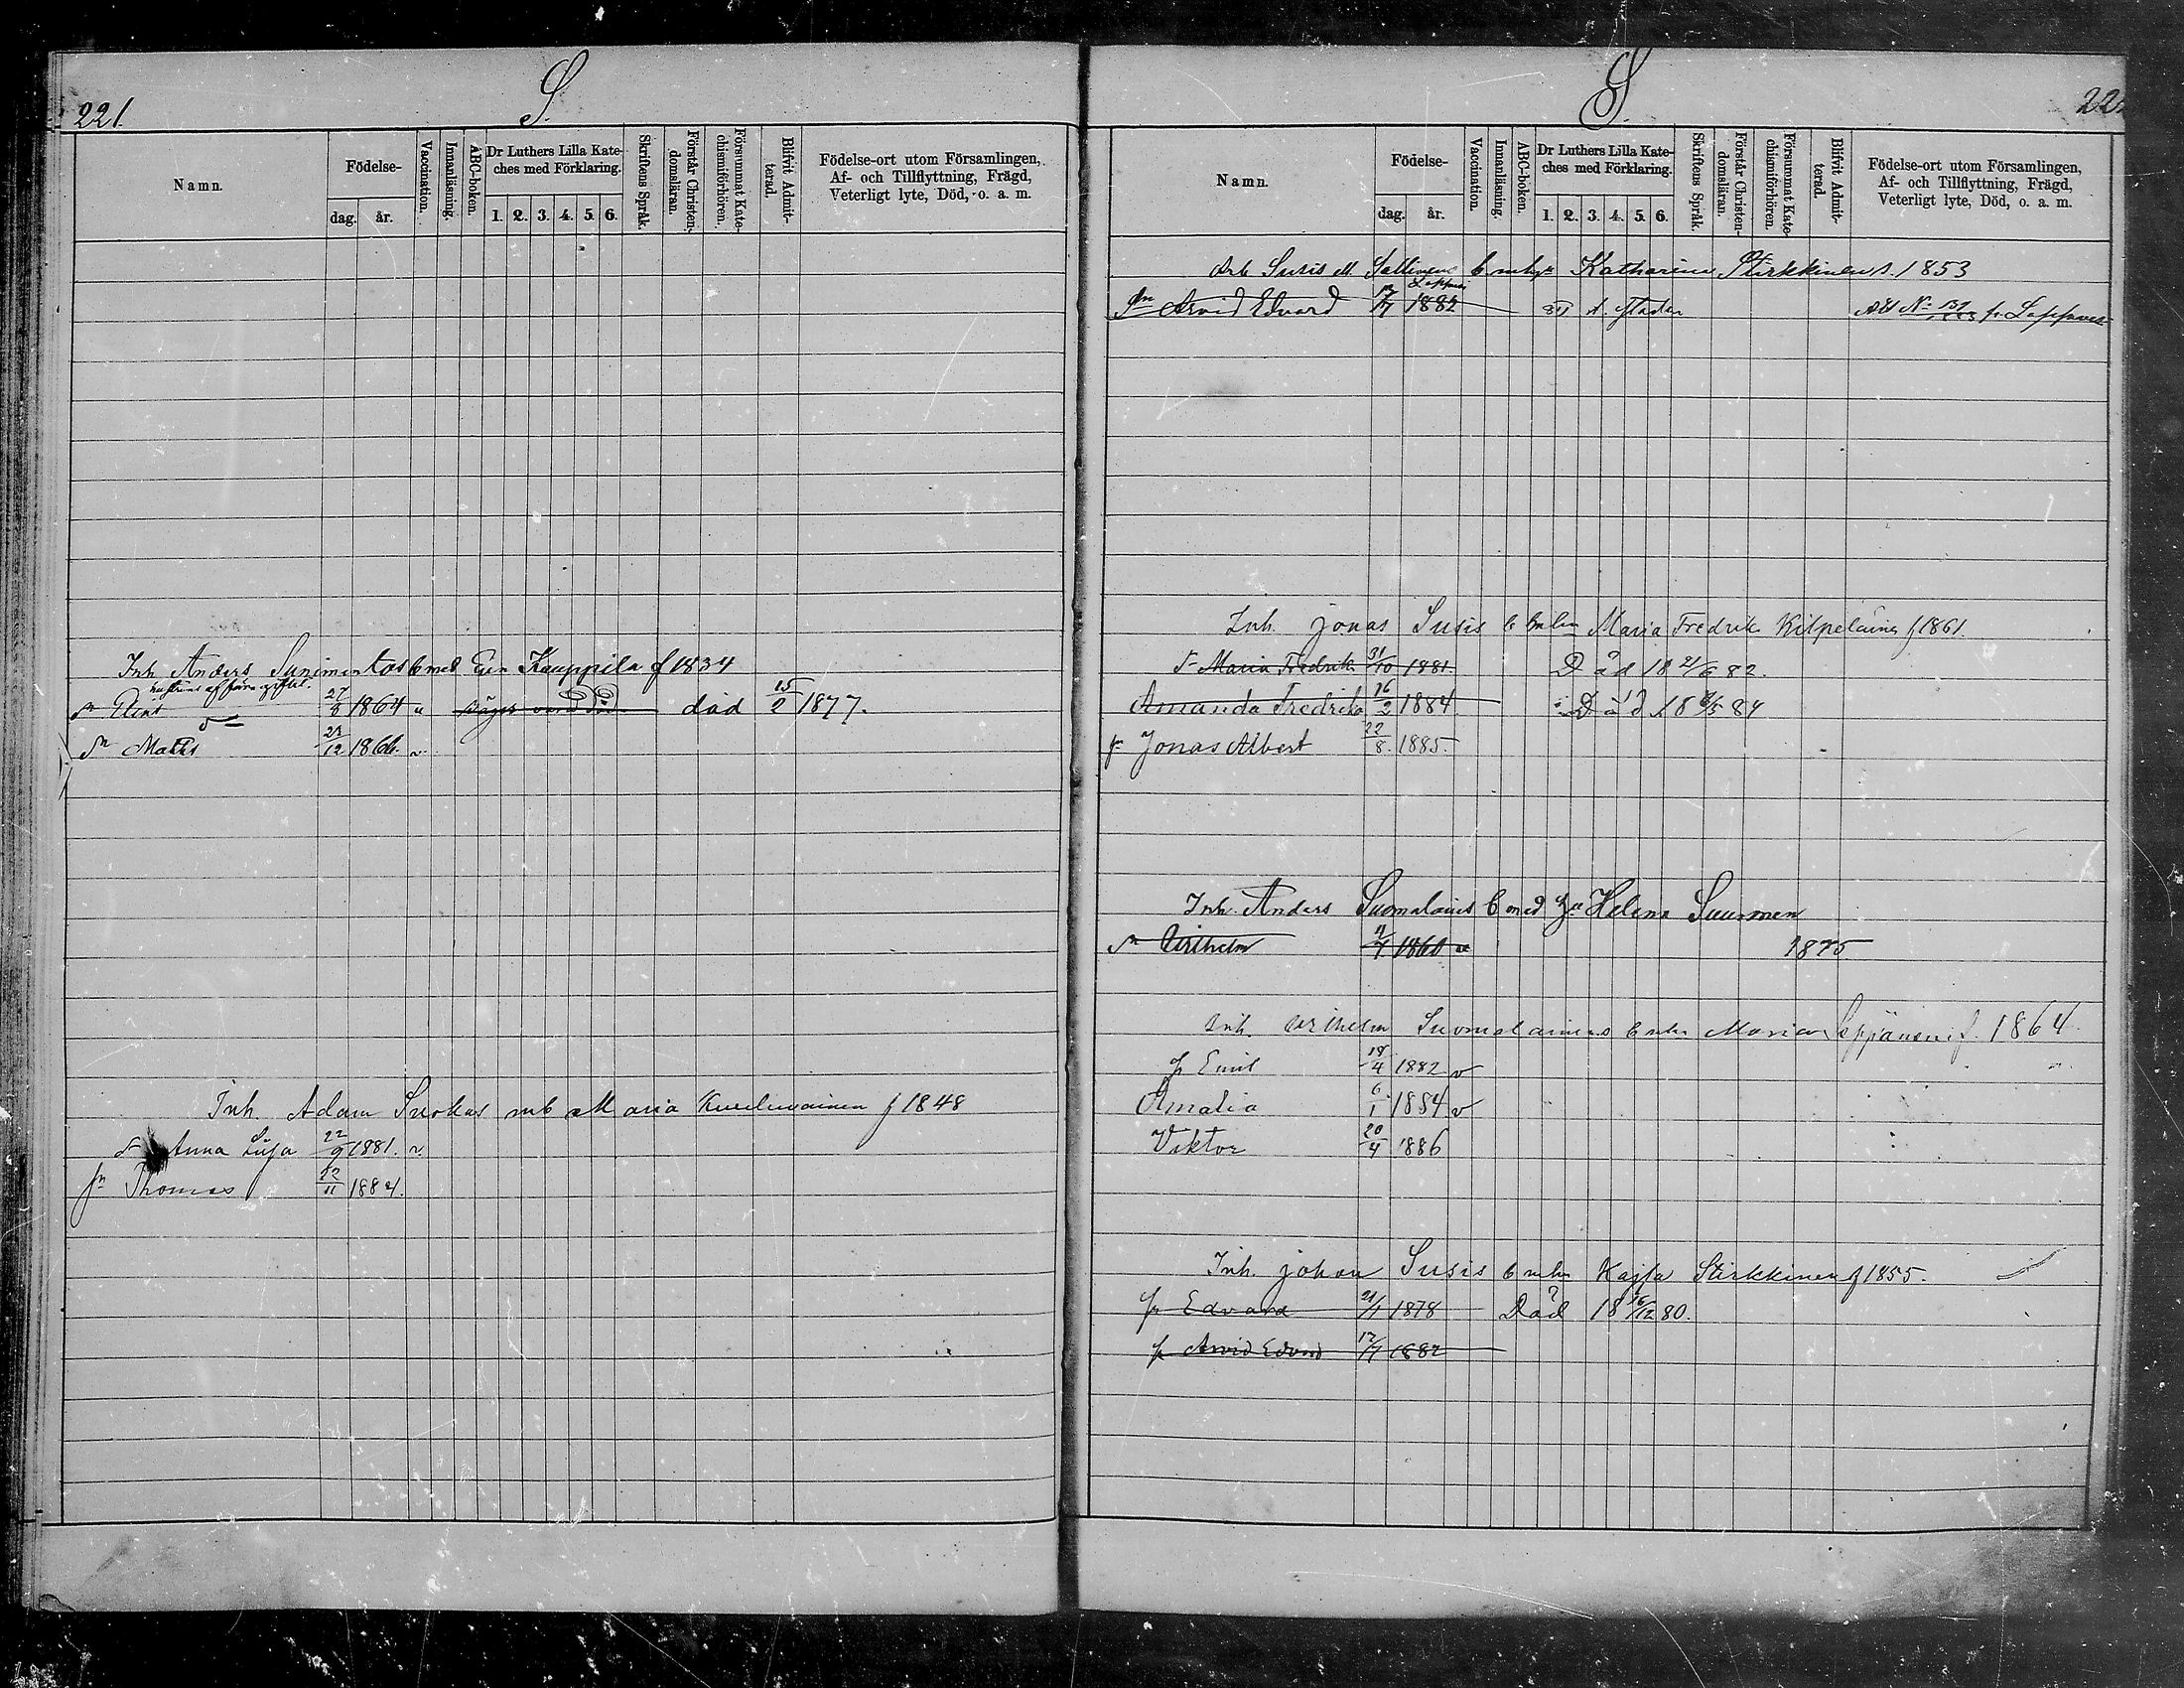 221.
S.
Namn.
Födelse-
dag. år.
Vaccination.
Innanläsning.
ABC-boken.
Dr Luthers Lilla Kate-
ches med Förklaring.
1. 2. 3. 4. 5. 6.
Skriftens Språk.
Förstår Christen-
domsläran.
Försummat Kate-
chismiförhören.
Blifvit Admit-
terad.
Födelse-ort utom Församlingen,
Af- och Tillflyttning, Frägd,
Veterligt lyte, Död, o. a. m.
Inh. Anders b med Kauppila f 1834
27/8 1864 död 15/2 1877.
Sn Matts 23/12 1866.
Inh. Adam Suokas mb Maria f 1848
Anna Lisa 22/9 1881.
Sn Thomas 12/11 1884.
S.
Namn.
Födelse-
dag. år.
Vaccination.
Innanläsning.
ABC-boken.
Dr Luthers Lilla Kate-
ches med Förklaring.
1. 2. 3. 4. 5. 6.
Skriftens Språk.
Förstår Christen-
domsläran.
Försummat Kate-
chismiförhören.
Blifvit Admit-
terad.
Födelse-ort utom Församlingen,
Af- och Tillflyttning, Frägd,
Veterligt lyte, Död, o. a. m.
Susis Katharina Stirkkinen 1853
Sn Arvid Edvard 17/7 1882
Inh. Jonas Susis Maria Fredrika Kilpeläinen f 1861.
Maria Fredrik 31/10 1881 Död 18 21/6 82.
Amanda Fredrika 16/2 1884 Död 18 84
Jonas Albert 22/8. 1885.
Inh. Anders Suomalainis b med Helena Suurnen
Sn Wilhelm 1860 1875
Inh. Wilhelm Suomalainens Maria Seppänen f. 1864.
Emil 18/4 1882 v
Amalia 6/1 1884 v
Viktor 20/4 1886
Inh. Johan Susis Kajsa Stirkkinen f 1855.
Edvard 21/1 1878 Död 18 16/12 80.
Arvid Edvard 17/7 1882